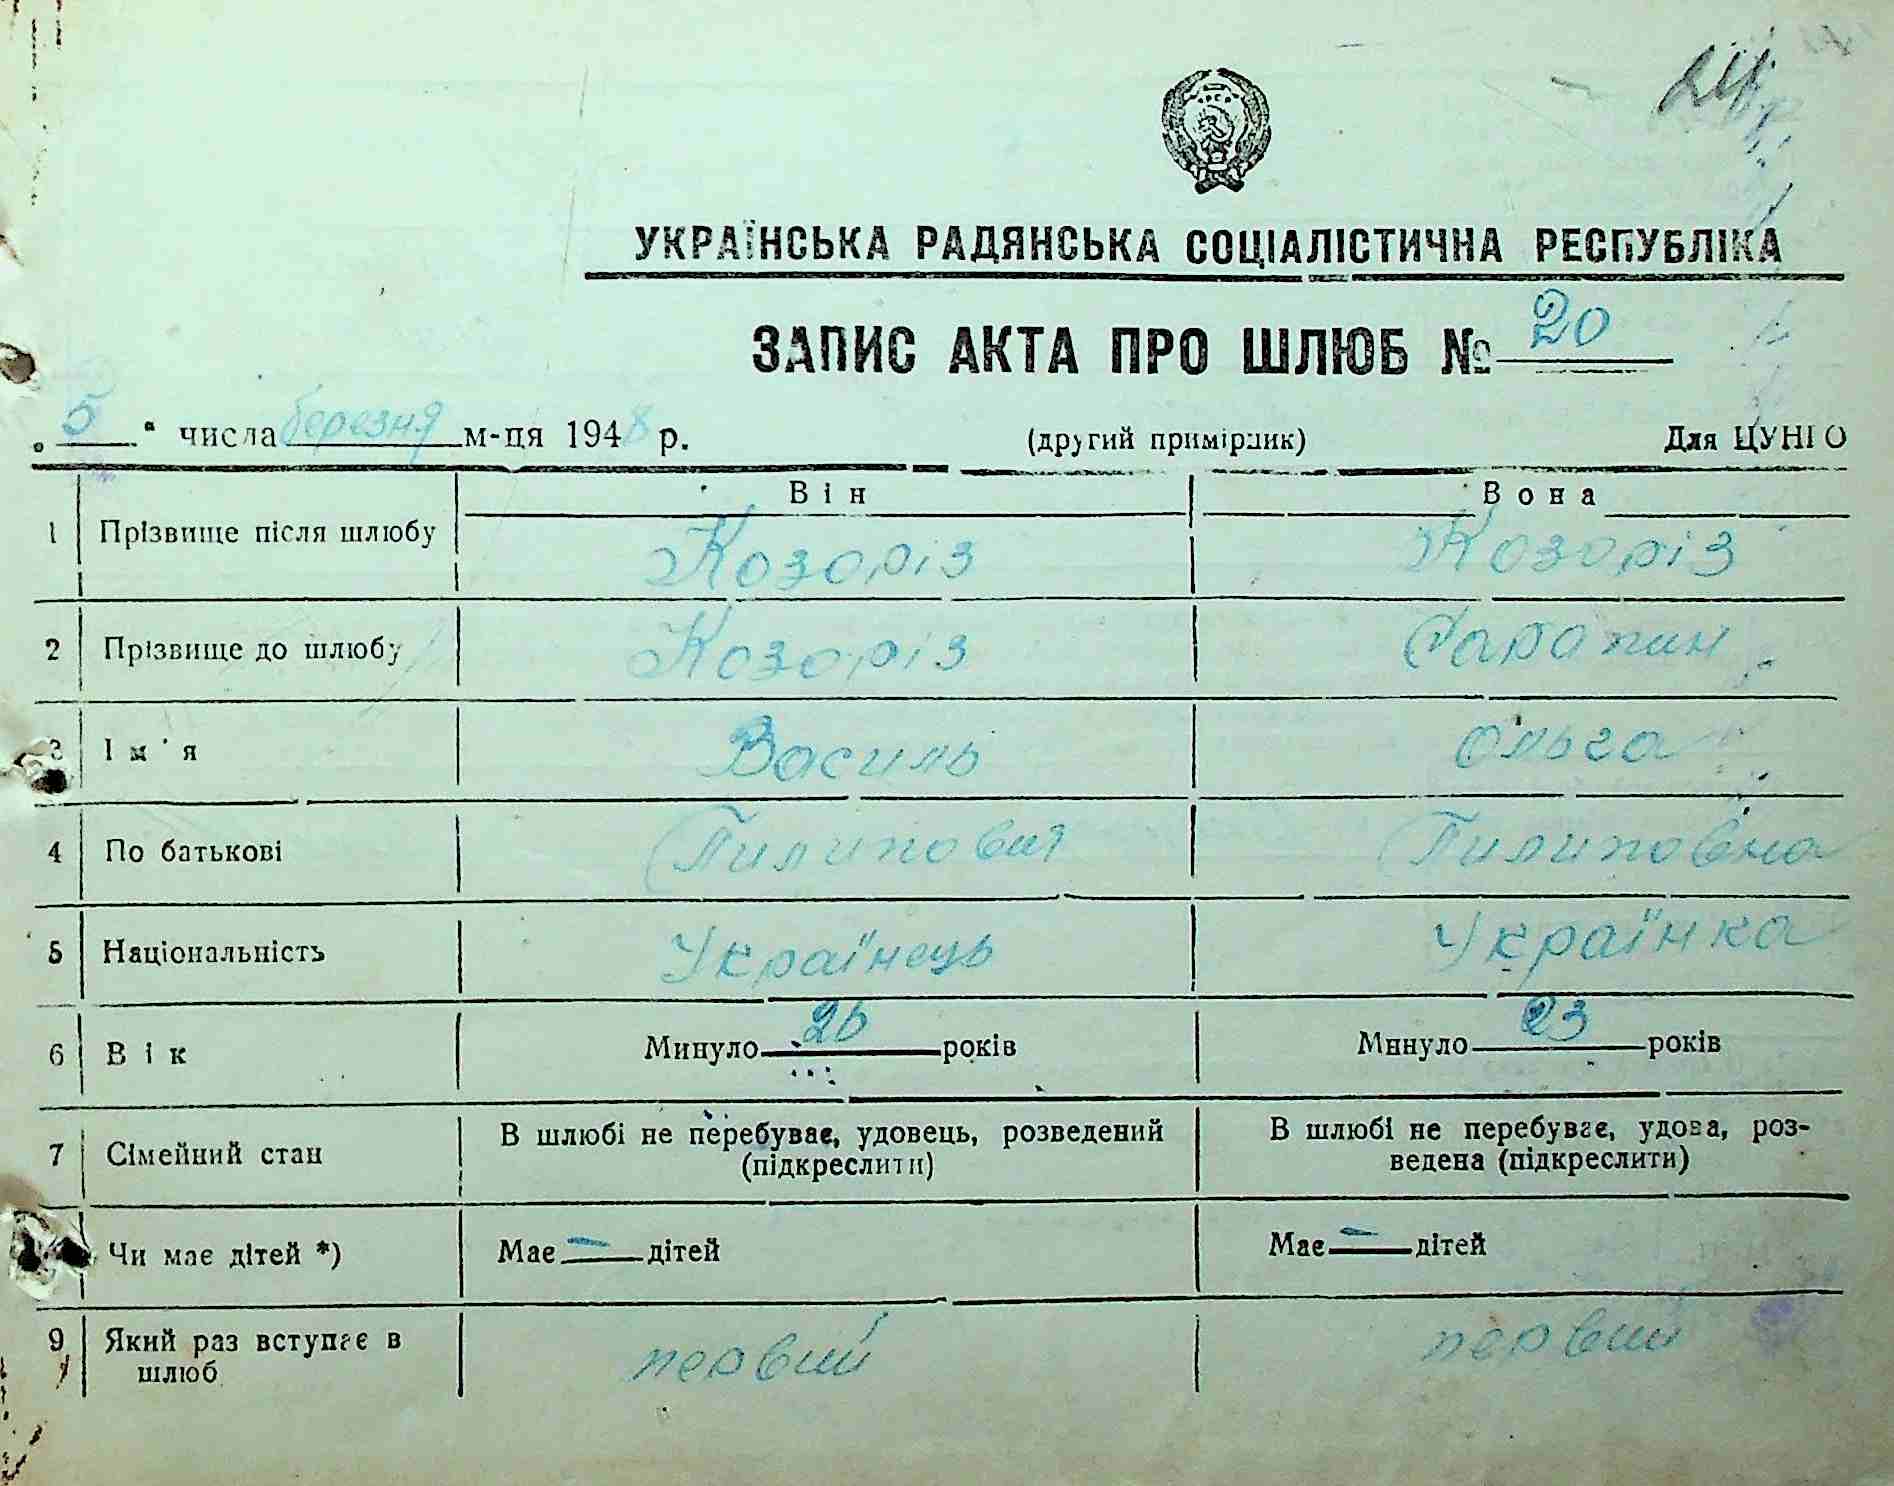 УКРАЇНСЬКА РАДЯНСЬКА СОЦІАЛІСТИЧНА РЕСПУБЛІКА
ЗАПИС АКТА ПРО ШЛЮБ № 20
„5“ числа березня м-ця 1948 р. (другий примірник) Для ЦУНГО
Він Вона
1 Прізвище після шлюбу Козоріз Козоріз
2 Прізвище до шлюбу Козоріз
3 Ім'я Василь Ольга
4 По батькові Пилипович Пилиповна
5 Національність Українець Українка
6 Вік Минуло 26 років Минуло 23 років
7 Сімейний стан В шлюбі не перебуває, удовець, розведений (підкреслити) В шлюбі не перебуває, удова, роз-
ведена (підкреслити)
Чи має дітей *) Має — дітей Має — дітей
9 Який раз вступає в шлюб первий первий